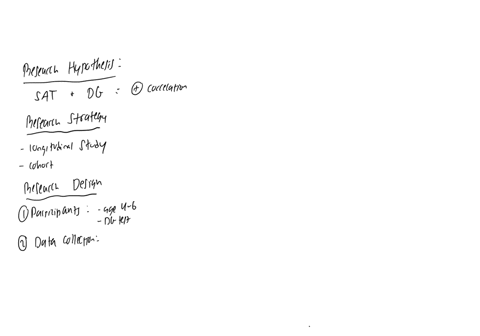 Research Hypothesis:
SAT + DG = ⊕ correlation
Research Strategy
- longitudinal study
- cohort
Research Design
① Participants: - age 4-6
- DG test
② Data collection: